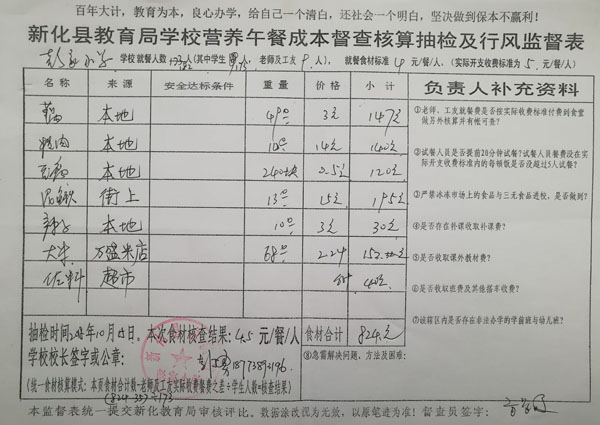 百年大计，教育为本，良心办学，给自己一个清白，还社会一个明白，坚决做到保本不赢利！
新化县教育局学校营养午餐成本督查核算抽检及行风监督表
小学 学校就餐人数 人(其中学生 人，老师及工友 9 人)， 就餐食材标准 4 元/餐/人， (实际开支收费标准为 5 元/餐/人)
名称 来源 安全达标条件 重量 价格 小计 负责人补充资料
本地 49 3元 147元
本地 10 14元 140元
240块 0.5元 120元
街上 13 15元 195元
本地 10 3元 30元
大米 万盛米店 68 2.24 152.
佐料 超市 40元
①老师、工友就餐费是否按实际收费标准付费到食堂做另外核算并有帐可查？
②试餐人员是否提前20分钟试餐？试餐人员餐费没在实际开支收费标准内的每顿饭是否没超过5人试餐？
③严禁冰冻市场上的食品与三无食品进校，是否做到？
④是否存在补课收取补课费？
⑤是否收取课外教材费？
⑥是否收取班费及其他搭车收费？
⑦该辖区内是否存在非法办学的学前班与幼儿班？
抽检时间 年10月 日。本次食材核查结果：4.5 元/餐/人 食材合计 824元
学校校长签字或公章： 18773892196 ⑧急需解决问题、方法及困难：
(统一食材核算模式：本页食材合计数-老师及工友实际收费餐费之差÷学生人数=核查结果)
本监督表统一提交新化教育局审核评比。数据涂改视为无效，以原笔迹为准！督查员签字：